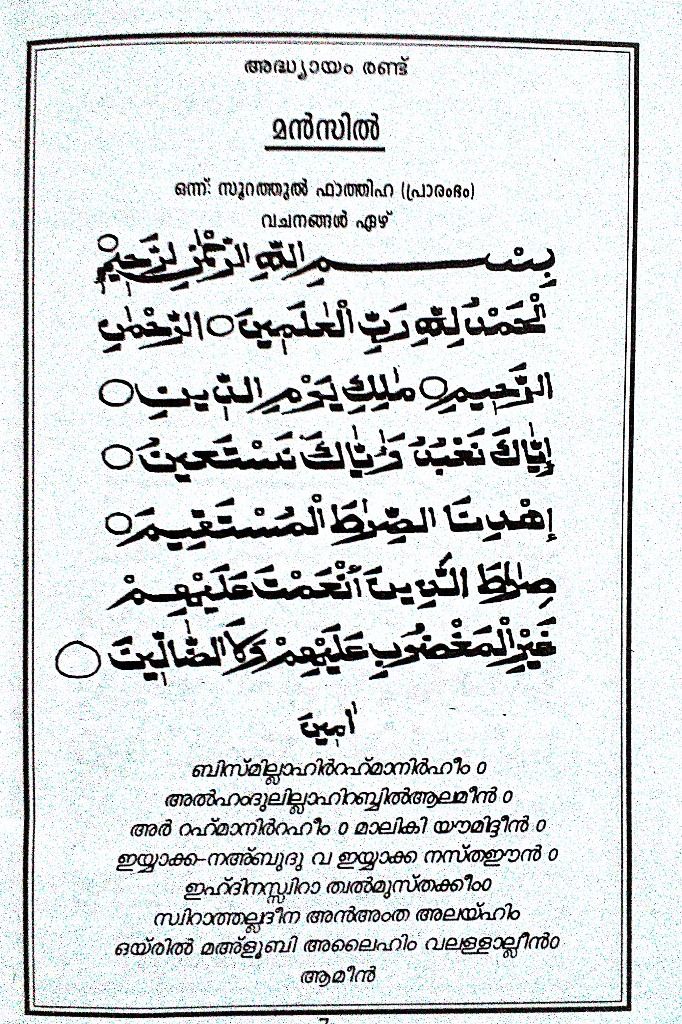 അദ്ധ്യായം രണ്ട്
മൻസിൽ
ഒന്ന്: സൂറത്തുൽ ഫാത്തിഹ (പ്രാരംഭം)
വചനങ്ങൾ ഏഴ്
بِسْمِ اللّٰهِ الرَّحْمٰنِ الرَّحِيْمِ
اَلْحَمْدُ لِلّٰهِ رَبِّ الْعٰلَمِيْنَ ○ الرَّحْمٰنِ
الرَّحِيْمِ ○ مٰلِكِ يَوْمِ الدِّيْنِ ○
إِيَّاكَ نَعْبُدُ وَإِيَّاكَ نَسْتَعِيْنُ ○
إِهْدِنَا الصِّرٰطَ الْمُسْتَقِيْمَ ○
صِرٰطَ الَّذِيْنَ أَنْعَمْتَ عَلَيْهِمْ
غَيْرِ الْمَغْضُوْبِ عَلَيْهِمْ وَلَا الضَّالِّيْنَ ○
اٰمِيْنَ
ബിസ്മില്ലാഹിർറഹ്മാനിർഹീം 0
അൽഹംദുലില്ലാഹിറബ്ബിൽആലമീൻ 0
അർ റഹ്മാനിർറഹീം 0 മാലികി യൗമിദ്ദീൻ 0
ഇയ്യാക്ക-നഅ്ബുദു വ ഇയ്യാക്ക നസ്തഈൻ 0
ഇഹ്ദിനസ്സ്വിറാ ത്വൽമുസ്തക്കീം0
സ്വിറാത്തല്ലദീന അൻഅംത അലയ്ഹിം
ഒയ്രിൽ മഅ്ളൂബി അലൈഹിം വലള്ളാല്ലീൻ0
ആമീൻ
7